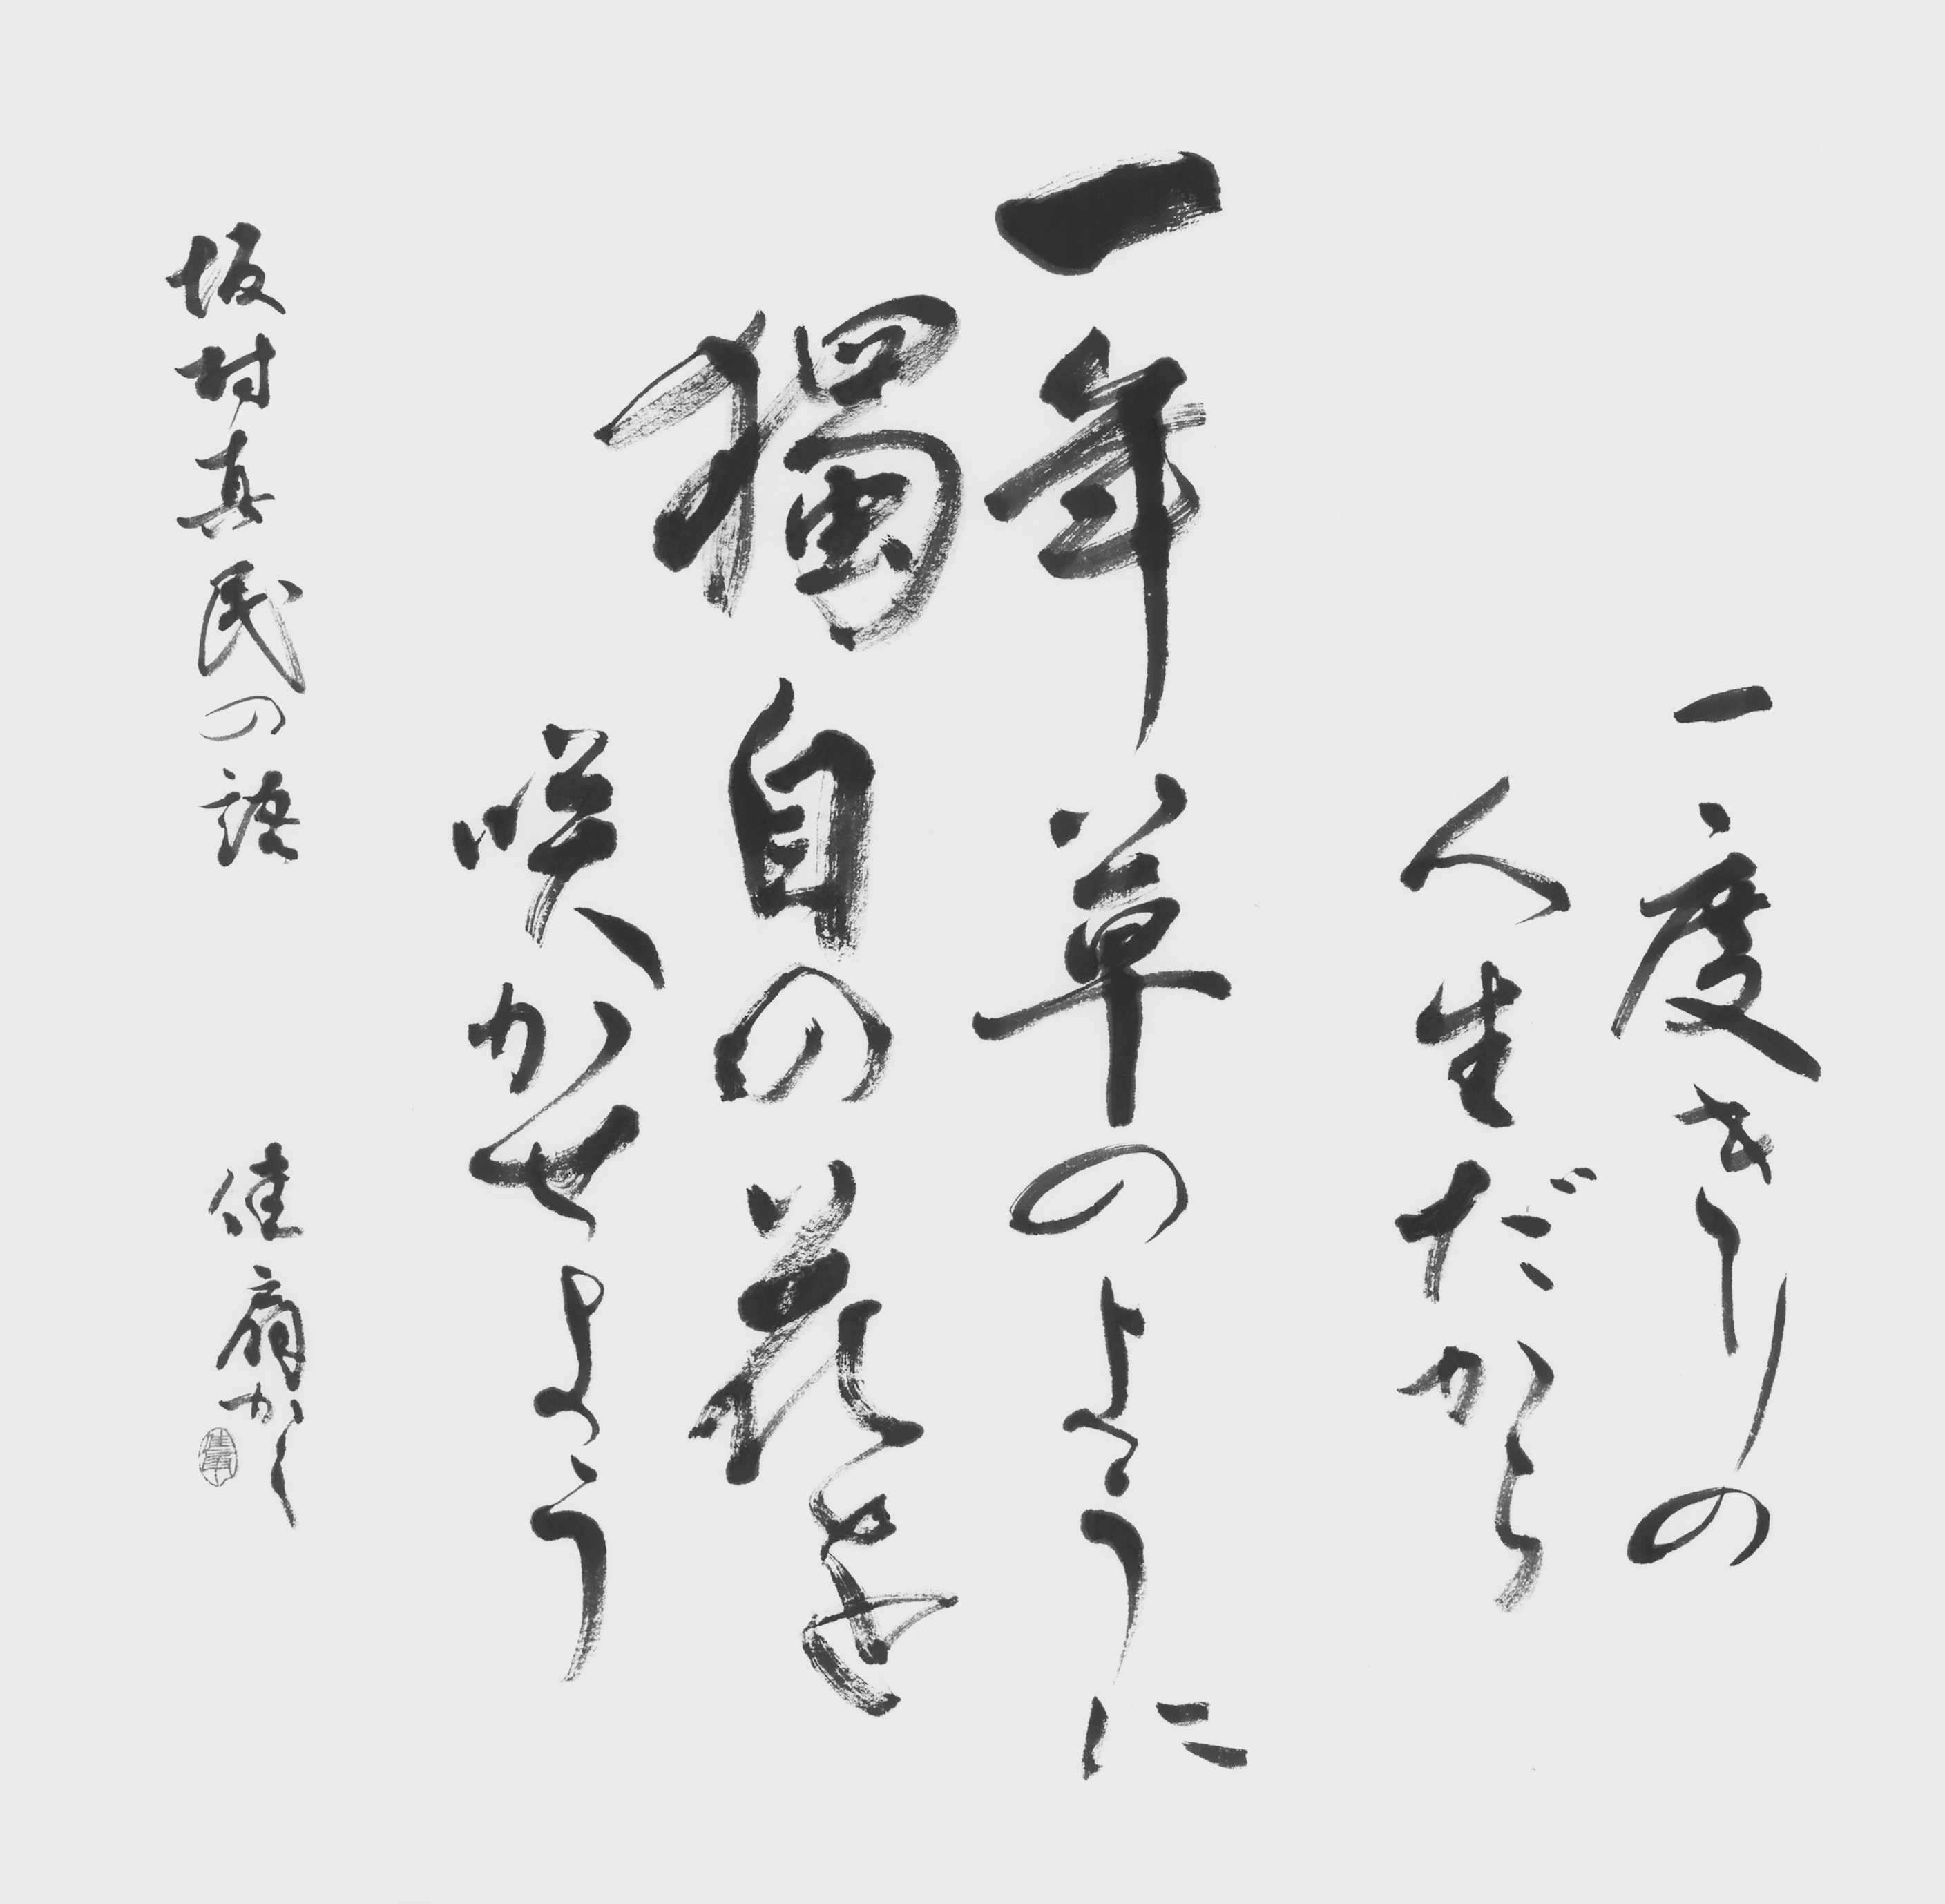 一度きりの
人生だから
一年草のように
獨自の花を
咲かせよう
坂村真民の語
佳扇かく